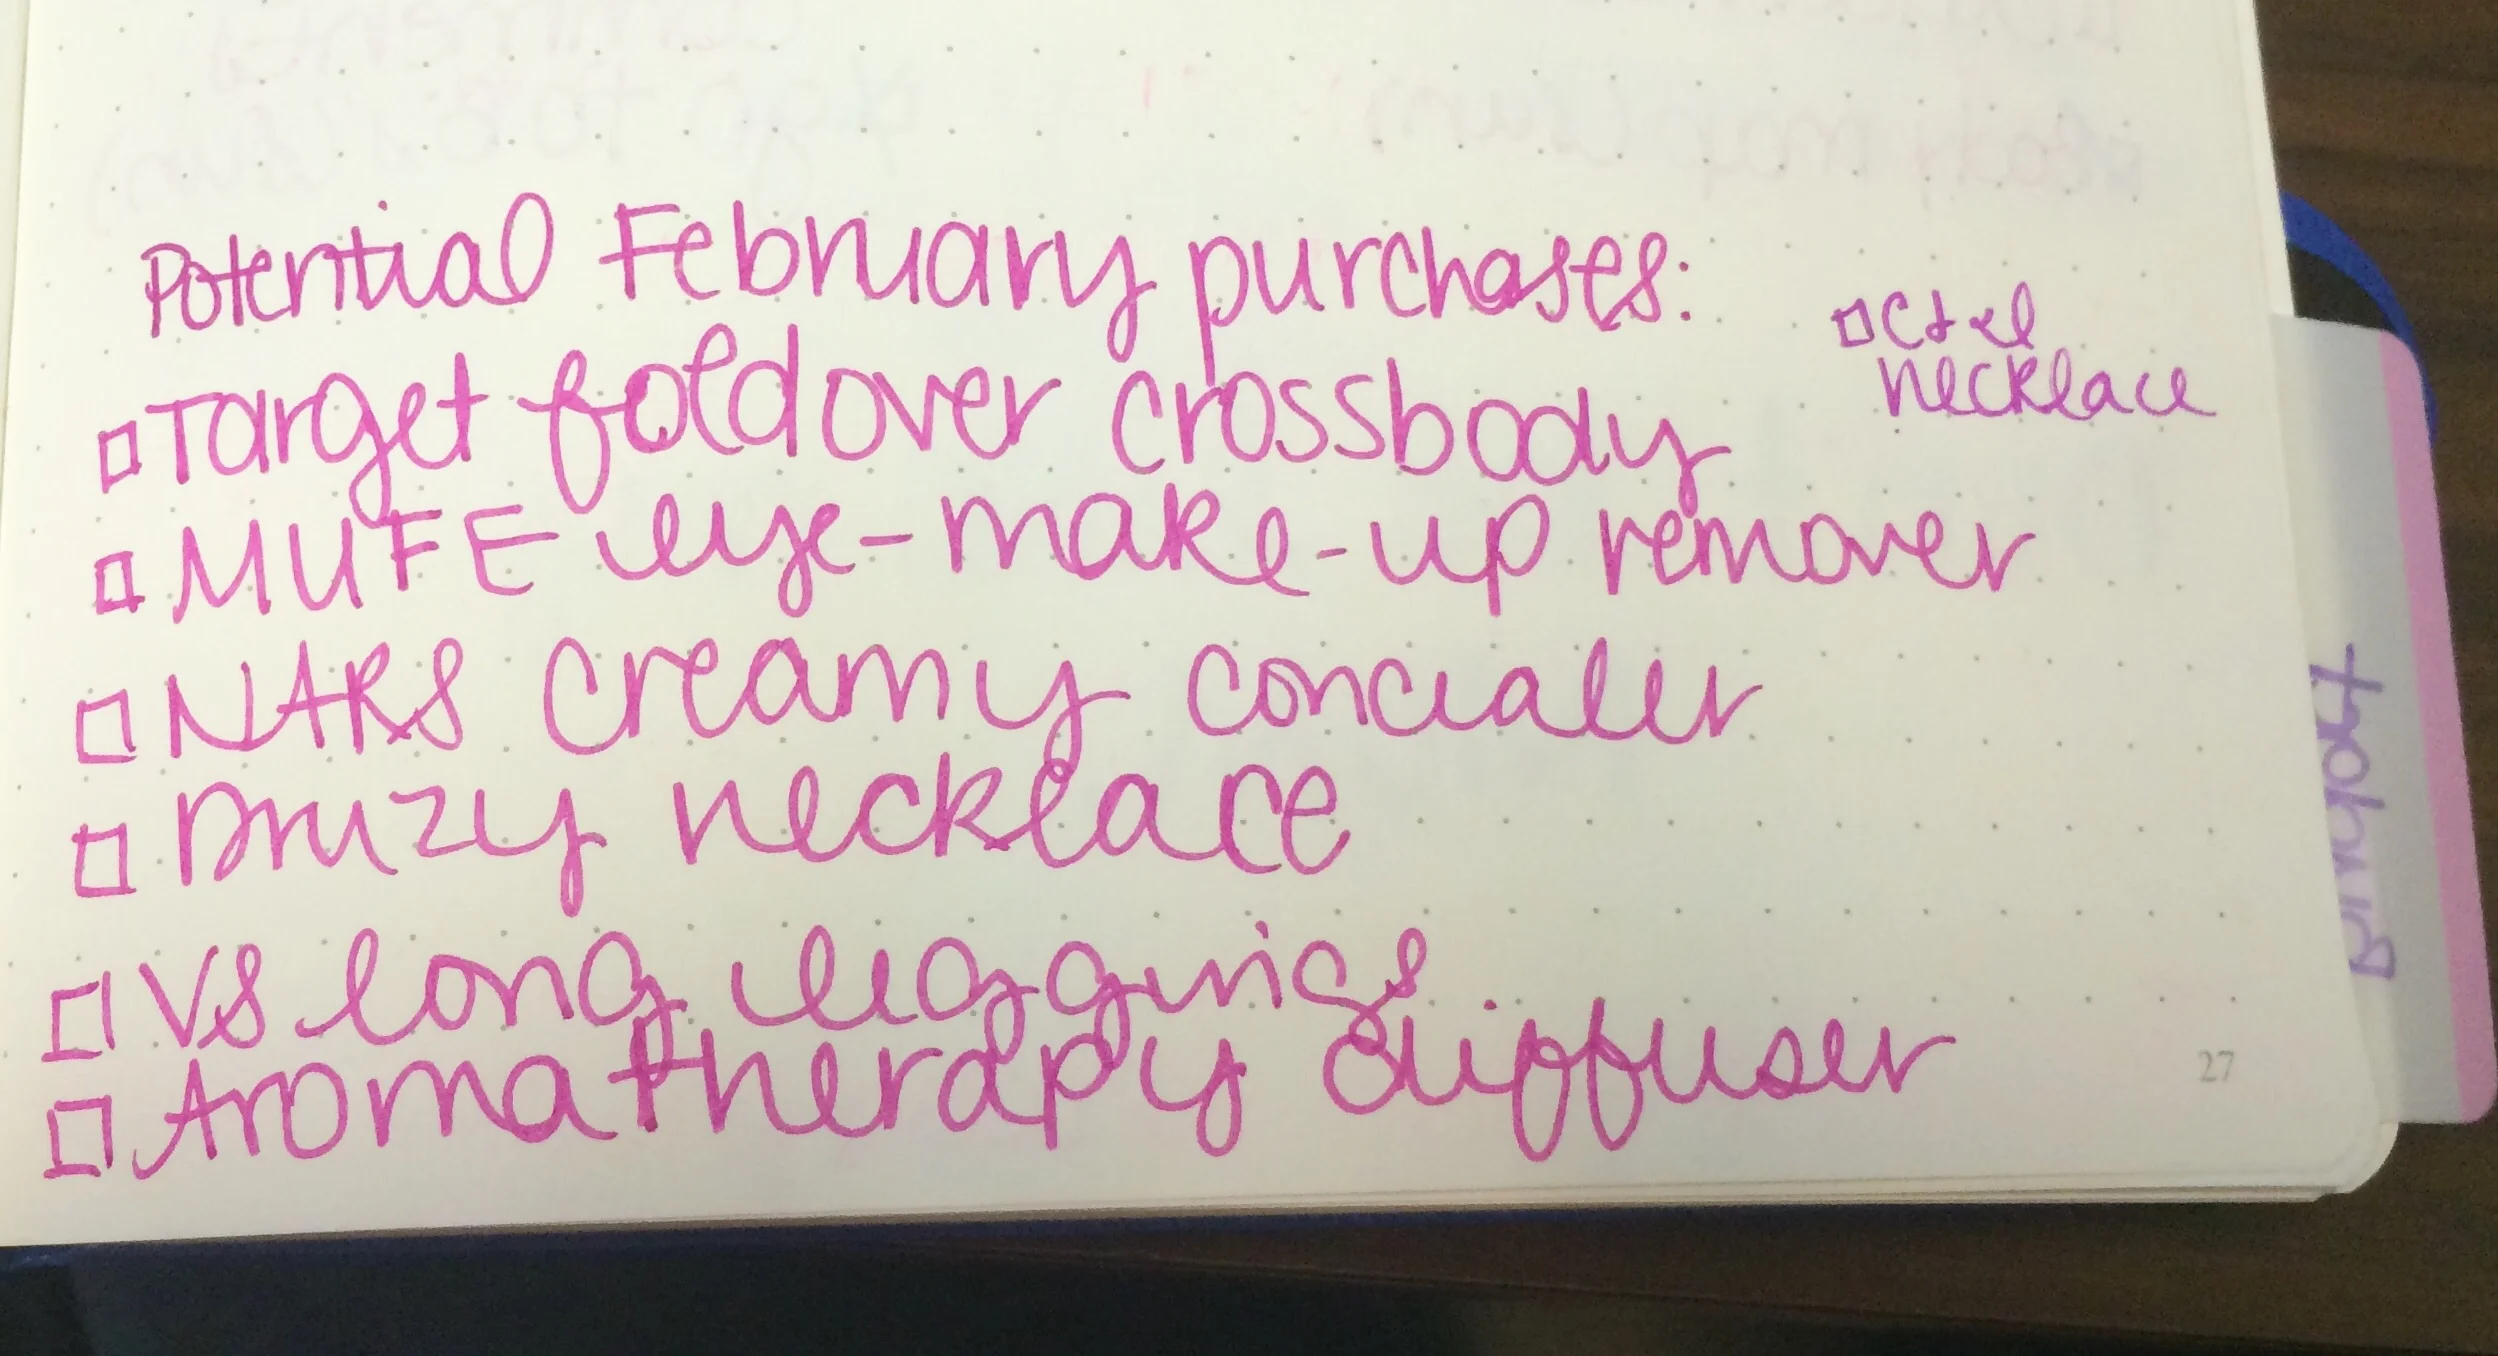 Potential February purchases:
Target foldover crossbody
MUFE eye-make-up remover
NARS creamy concialer
Druzy necklace
VS long leggings
Aromatherapy diffuser
necklace
27